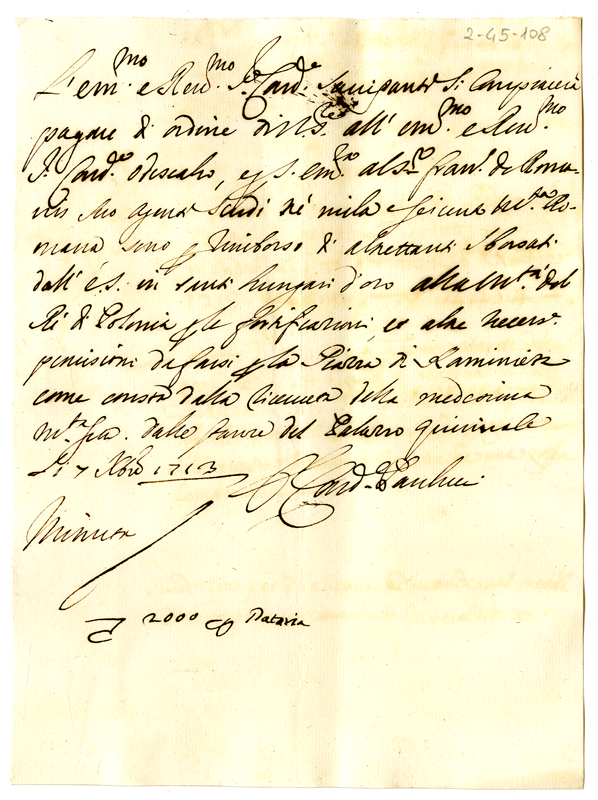 2-45-108
L'em.mo e Rev.mo S.r Card.le Sacripanti si compiacerà
pagare di ordine di N.S. all' em.mo e Rev.mo
S. Card.le Odescalco, e p S. em.za al S.r Fran.co de Roma-
nis suo agente scudi tré mila e seicento m.ta Ro-
mana sono p rimborso di altrettanti sborsati
dall' E.S. in tanti hungari d'oro alla M.tà del
Ré di Polonia p le fortificazioni, et altre necess.e
provisioni da farsi p la Piazza di Kaminietz
come consta dalla ricevuta della medesima
M.tà sua. dalle stanze del Palazzo Quirinale
Li 7 Xbre 1713
F Card. Paulucci
Minuta
2000 p Dataria